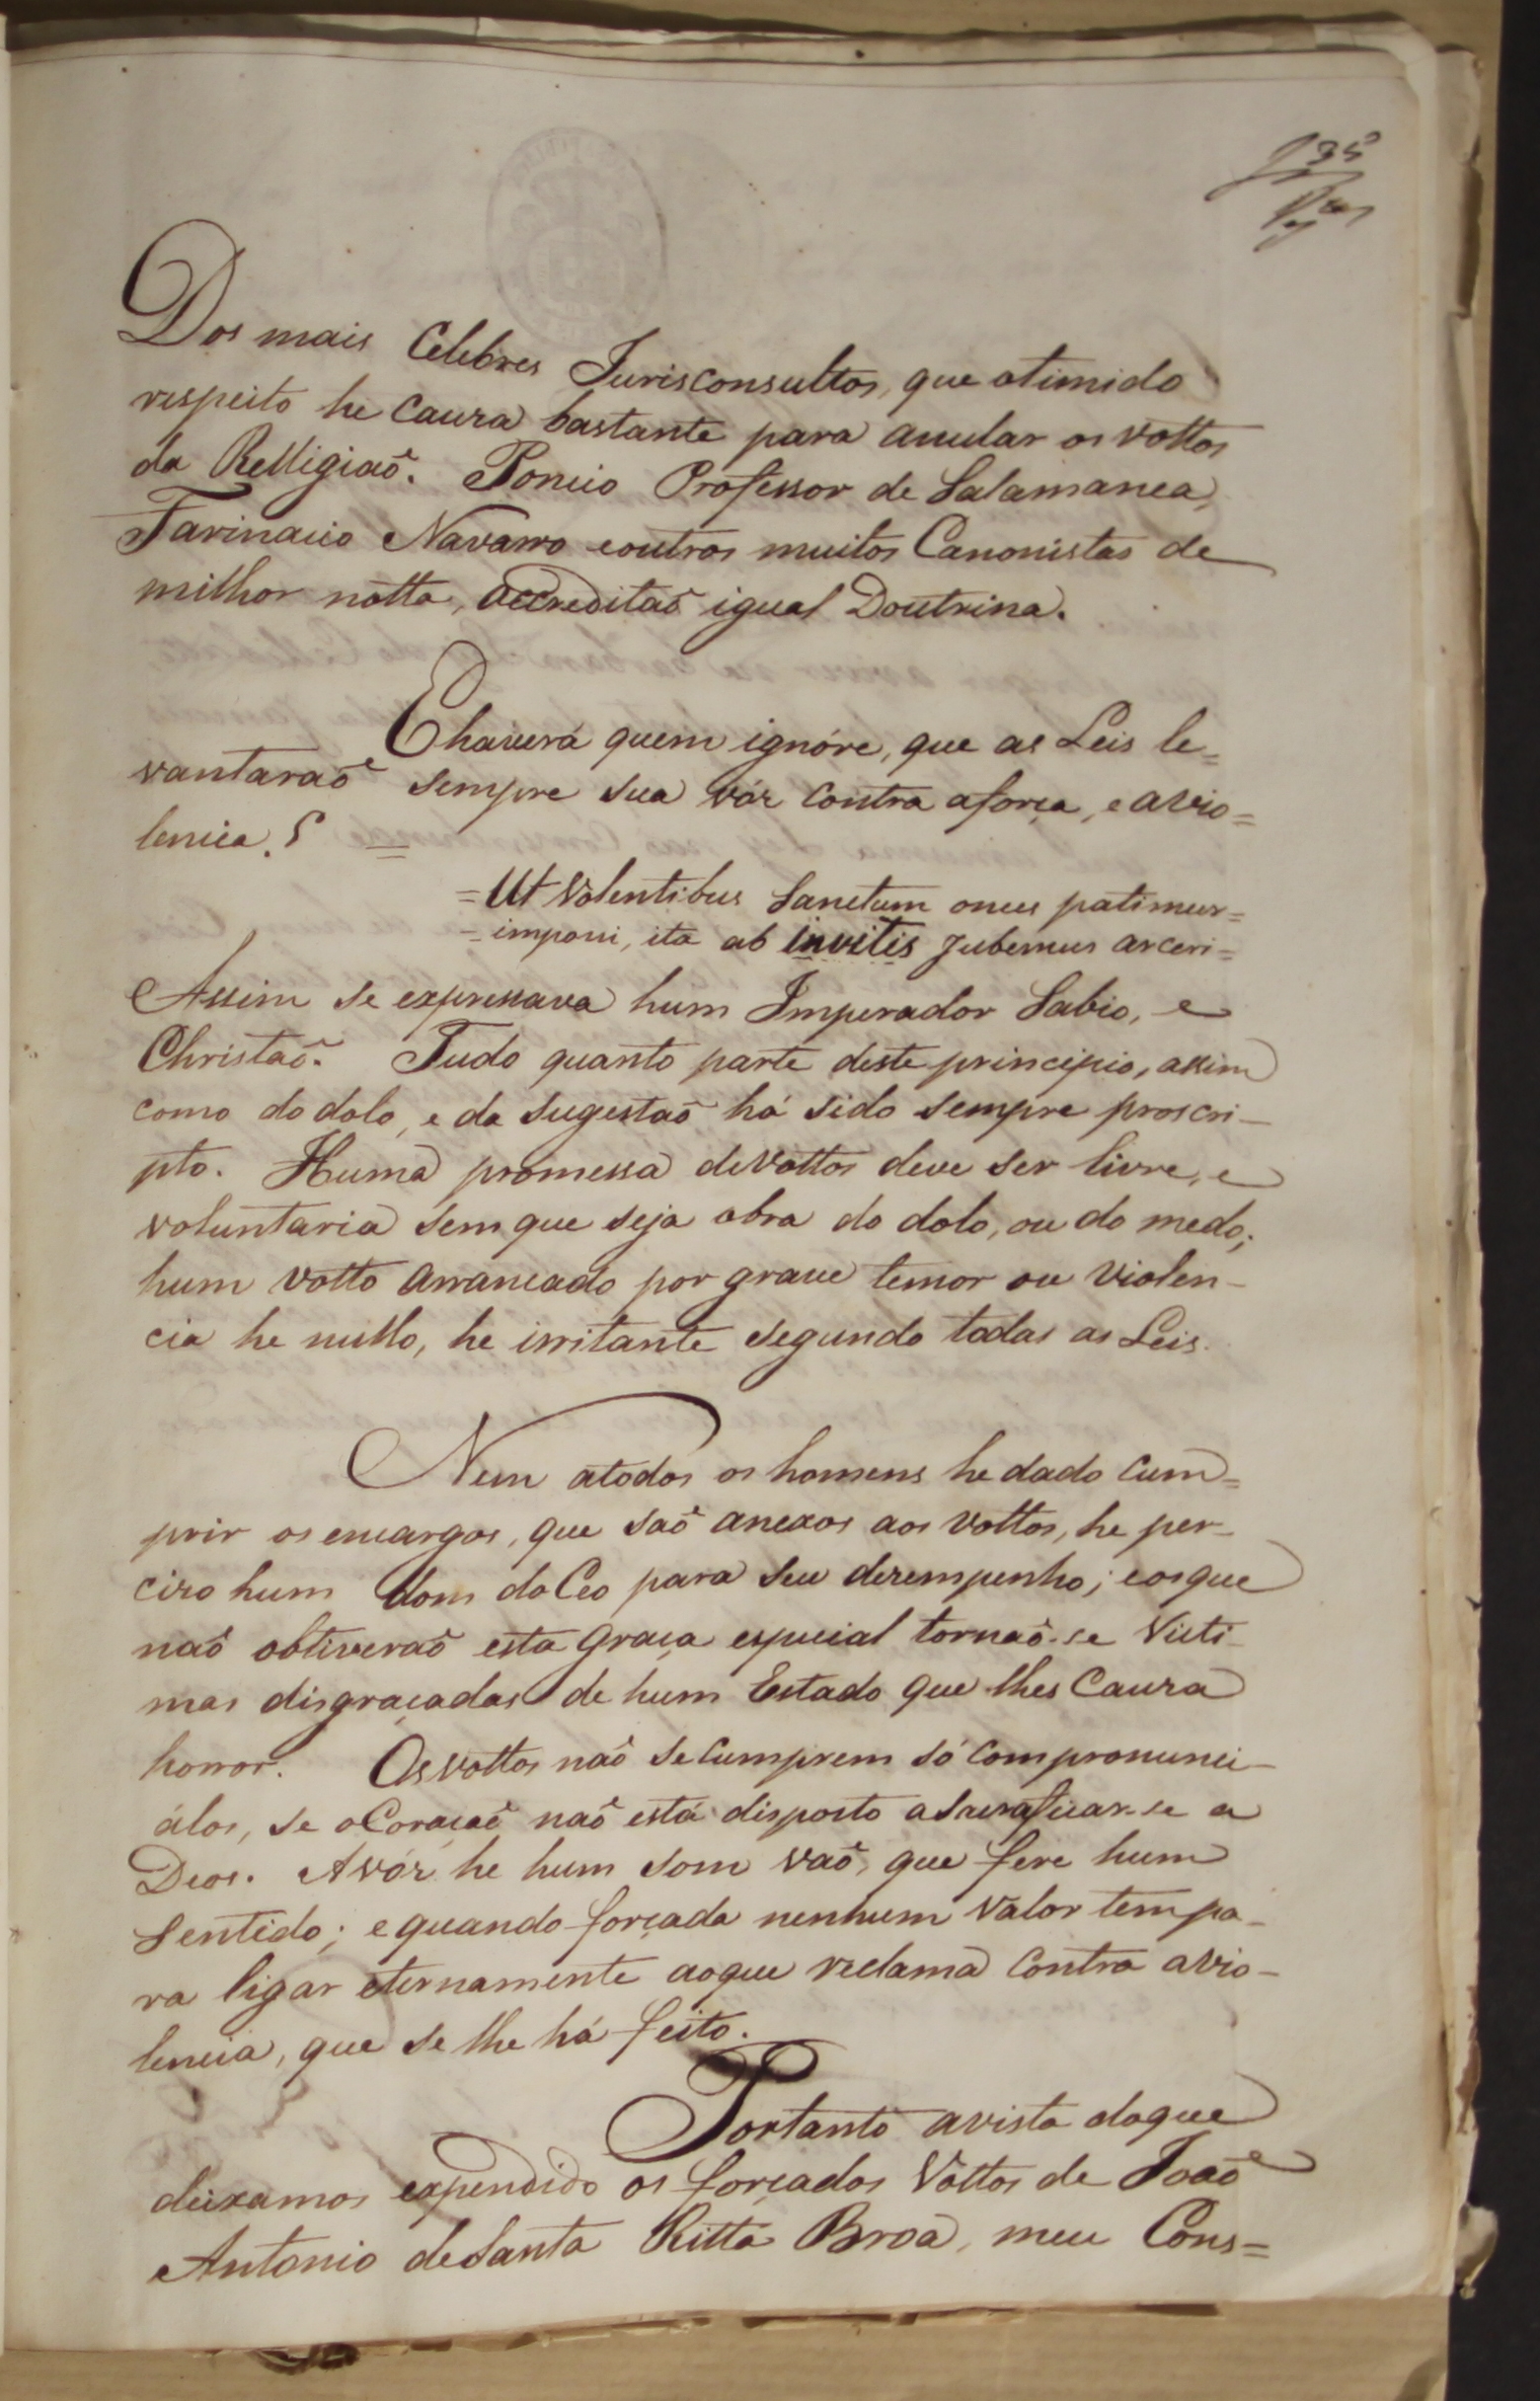 35
Dos mais Celebres Jurisconsultos, que otimido
respeito he Cauza bastante para anular os vottos
da Relligiaõ. Poncio Professor de Salamanca,
Farinacio Navarro e outros muitos Canonistas de
milhor notta, accreditaõ igual Doutrina.
E haverá quem ignóre, que as Leis le=
vantaraõ sempre sua vóz contra aforça, e avio=
lencia.?
=Ut Volentibus Sanctum onus patimur=
=imponi, ita ab invitis jubemus arceri=
Assim se expressava hum Imperador Sabio, e
Christaõ. Tudo quanto parte deste principio, assim
como do dolo, e da sugestaõ há sido sempre proscri-
pto. Huma promessa deVottos deve ser livre, e
voluntaria sem que seja obra do dolo, ou do medo;
hum votto arrancado por grave temor ou violen-
cia he nullo, he irritante segundo todas as Leis.
Nem atodos os homens he dado cum=
prir os encargos, que saõ anexos aos vottos, he per-
cizo hum dom do Ceo para seu dezempenho; e os que
naõ obtiveraõ esta graça especial tornaõ-se victi-
mas disgraçadas de hum Estado que lhes Cauza
horror. Os vottos naõ se cumprem só com pronunci-
álos, se o Coraçaõ naõ está disposto a sacraficar-se a
Deos. A vóz he hum som vaõ, que fere hum
sentido; e quando forçada nenhum valor tem pa-
ra ligar eternamente aoque reclama contra avio-
lencia, que se lhe há feito.
Portanto avista doque
deixamos expendido os forçados Vottos de Joaõ
Antonio deSanta Ritta Broa, meu Cons=